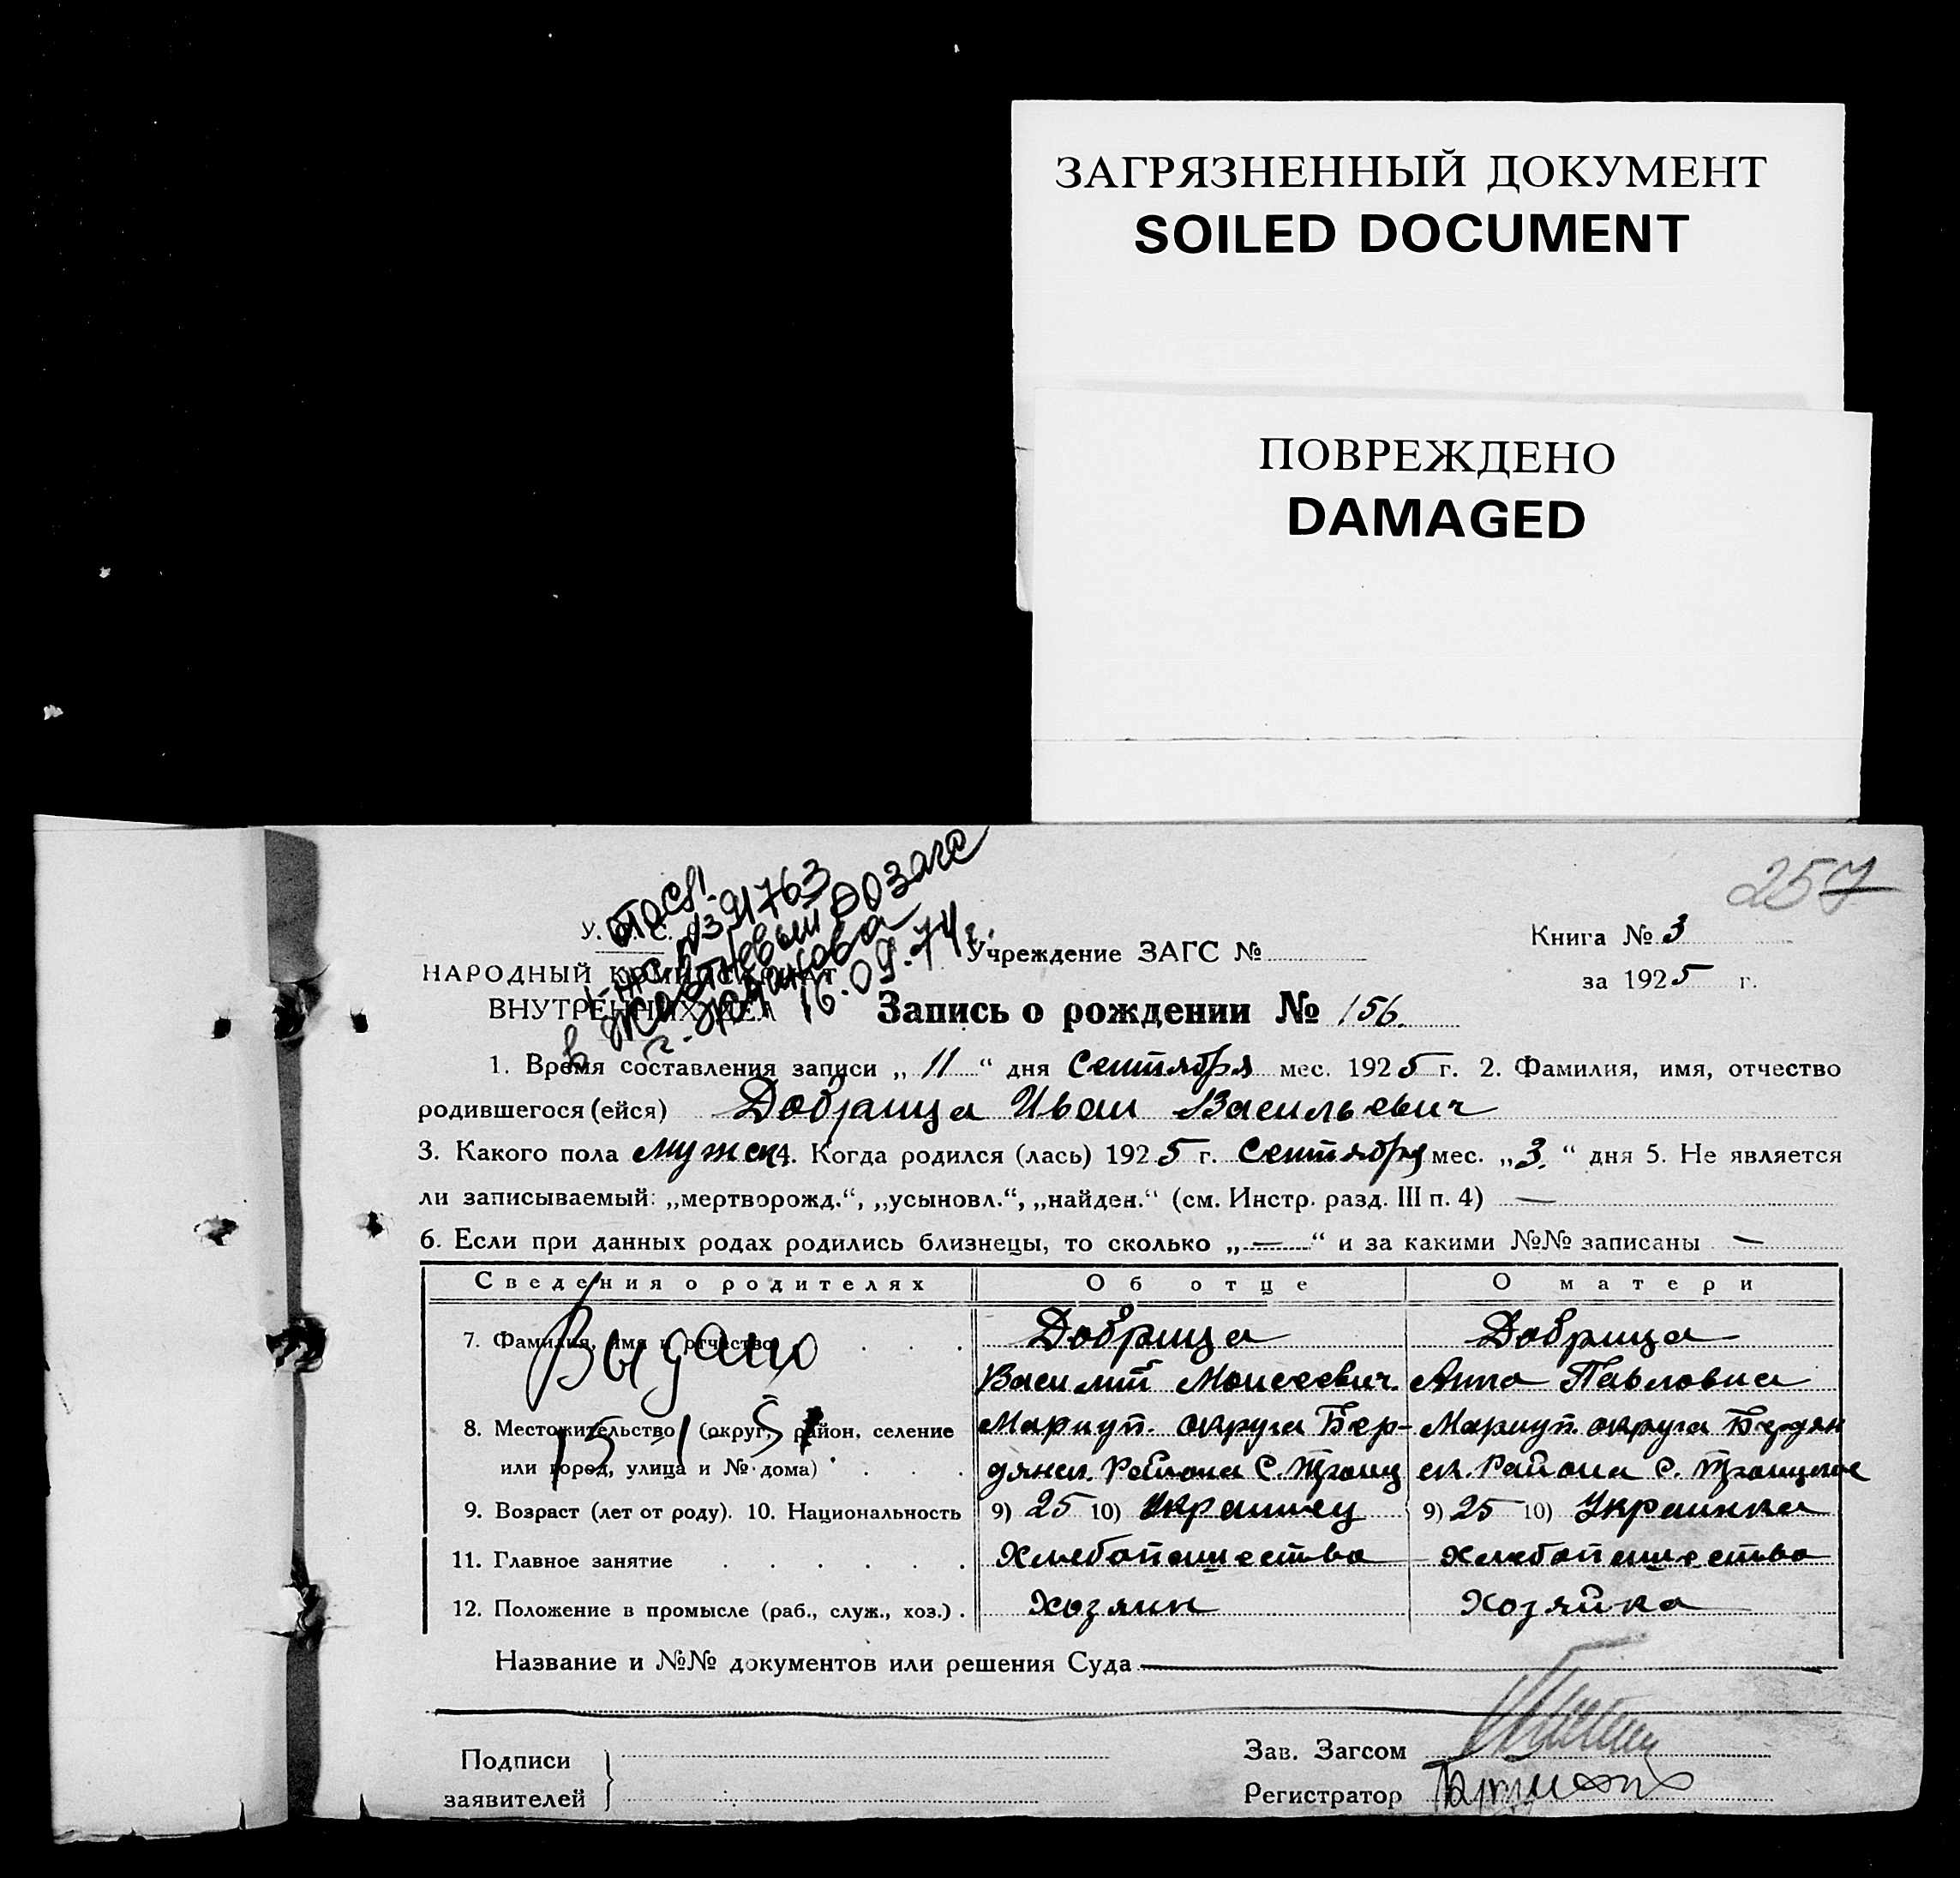 ЗАГРЯЗНЕННЫЙ ДОКУМЕНТ
SOILED DOCUMENT
ПОВРЕЖДЕНО
DAMAGED
257
391763
16.09.74г.
Учреждение ЗАГС №
Книга № 3
за 1925 г.
НАРОДНЫЙ
ВНУТРЕННИХ ДЕЛ
Запись о рождении № 156.
1. Время составления записи „ 11 “ дня Сентября мес. 1925 г. 2. Фамилия, имя, отчество
родившегося (ейся) Добрица Иван Васильевич
3. Какого пола мужск 4. Когда родился (лась) 1925 г. Сентября мес. „3.“ дня 5. Не является
ли записываемый: „мертворожд.“, „усыновл.“, „найден.“ (см. Инстр. разд. III п. 4) —
6. Если при данных родах родились близнецы, то сколько „—“ и за какими №№ записаны —
Сведения о родителях Об отце О матери
7. Фамилия, имя и отчество . . . Добрица Добрица
Выдано
Василий Моисеевич. Анна Павловна
8. Местожительство (округ, район, селение Мариуп. округа Бер- Мариуп. округа Бердян
или город, улица и № дома) . . . дянск. Района С. Троиц ск. Района С. Троицкое
9. Возраст (лет от роду). 10. Национальность 9) 25 10) Украинец 9) 25 10) Украинка
11. Главное занятие . . . . . . Хлебопашество Хлебопашество
12. Положение в промысле (раб., служ., хоз.) . Хозяин Хозяйка
Название и №№ документов или решения Суда
Подписи
заявителей
Зав. Загсом
Регистратор